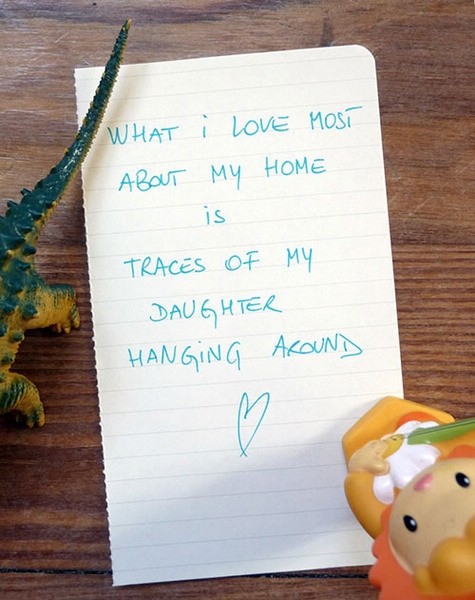 WHAT i LOVE MOST
ABOUT MY HOME
is
TRACES OF MY
DAUGHTER
HANGiNG AROUND